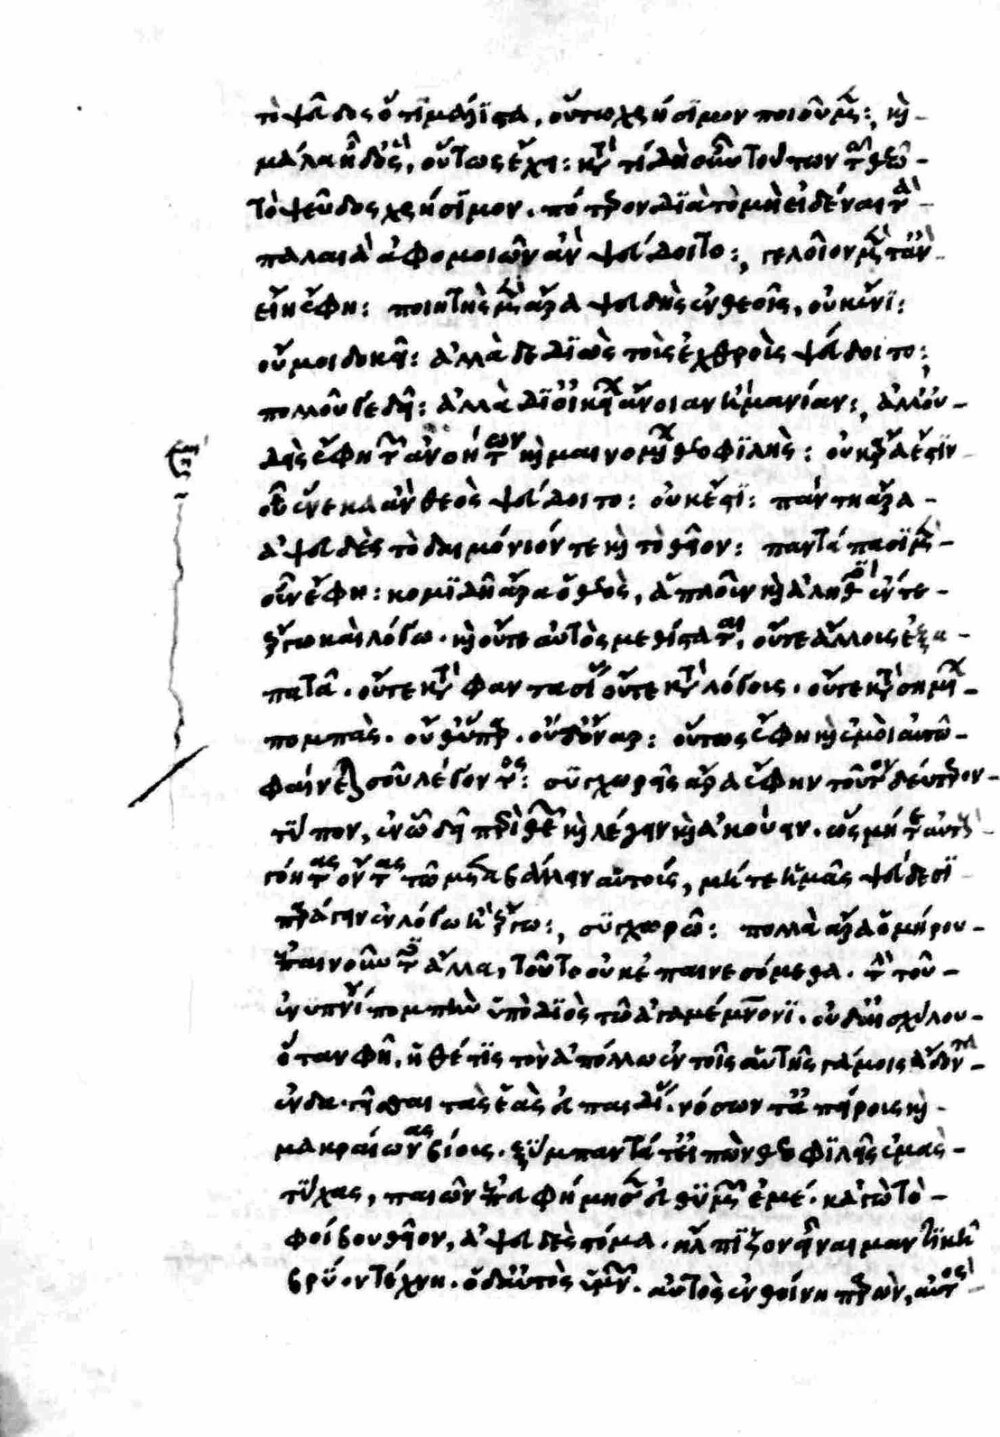 τὸ ψεῦδος ὅτι μάλιστα, οὕτω χρήσιμον ποιοῦμεν: καὶ
μάλα ἦ δ' ὅς, οὕτως ἔχει: κατὰ τί δὴ οὖν τούτων τῷ θεῷ
τὸ ψεῦδος χρήσιμον. πότερον διὰ τὸ μὴ εἰδέναι τὰ
παλαιὰ ἀφομοιῶν ἂν ψεύδοιτο: γελοῖον μέντ' ἂν
εἴη ἔφη: ποιητὴς μὲν ἄρα ψευδὴς ἐν θεοῖς, οὐκ ἔνι:
οὔ μοι δοκεῖ: ἀλλὰ δεδιὼς τοὺς ἐχθροὺς ψεύδοιτο:
πολλοῦ γε δεῖ: ἀλλὰ δι' οἰκείων ἄνοιαν ἢ μανίαν: ἀλλ' οὐ
δεὶς ἔφη τῶν ἀνοήτων καὶ μαινομένων θεοφιλής: οὐκ ἄρα ἔστιν
οὗ ἕνεκα ἂν θεὸς ψεύδοιτο: οὐκ ἔστι: πάντη ἄρα
ἀψευδὲς τὸ δαιμόνιόν τε καὶ τὸ θεῖον: παντάπασι μὲν
οὖν ἔφη: κομιδῇ ἄρα ὁ θεὸς, ἁπλοῦν καὶ ἀληθὲς ἔν τε
ἔργῳ καὶ λόγῳ. καὶ οὔτε αὐτὸς μεθίσταται, οὔτε ἄλλους ἐξα
πατᾷ. οὔτε κατὰ φαντασίας οὔτε κατὰ λόγους. οὔτε κατὰ σημείων
πομπὰς. οὔθ' ὕπαρ. οὐδ' ὄναρ: οὕτως ἔφη καὶ ἐμοὶ αὐτῷ
φαίνεται σοῦ λέγοντος: συγχωρεῖς ἄρα ἔφην τοῦτον δεύτερον
τύπον, ἐν ᾧ δεῖ περὶ θεῶν καὶ λέγειν καὶ ποιεῖν. ὡς μήτε αὐτοὺς
γόητας ὄντας τῷ μεταβάλλειν αὑτούς, μήτε ἡμᾶς ψεύδεσι
παράγειν ἐν λόγῳ ἢ ἔργῳ: συγχωρῶ: πολλὰ ἄρα ὁμήρου
ἐπαινοῦντες ἄλλα, τοῦτο οὐκ ἐπαινεσόμεθα. τὴν τοῦ
ἐνυπνίου πομπὴν ὑπὸ διὸς τῷ ἀγαμέμνονι. οὐδὲ αἰσχύλου
ὅταν φῇ, ἡ θέτις τὸν ἀπόλλω ἐν τοῖς αὑτῆς γάμοις ἄδοντα
ἐνδατεῖσθαι τὰς ἑὰς εὐπαιδίας. νόσων τ' ἀπείρους καὶ
μακραίωνας βίους. ξύμπαντά τ' εἰπὼν θεοφιλεῖς ἐμὰς
τύχας, παιῶν' ἐπευφήμησεν εὐθυμῶν ἐμέ. κἀγὼ τὸ
φοίβου θεῖον, ἀψευδὲς στόμα. ἤλπιζον εἶναι μαντικῇ
βρύον τέχνῃ. ὁ δ' αὐτὸς ὑμνῶν. αὐτὸς ἐν θοίνῃ παρὼν, αὐτὸς